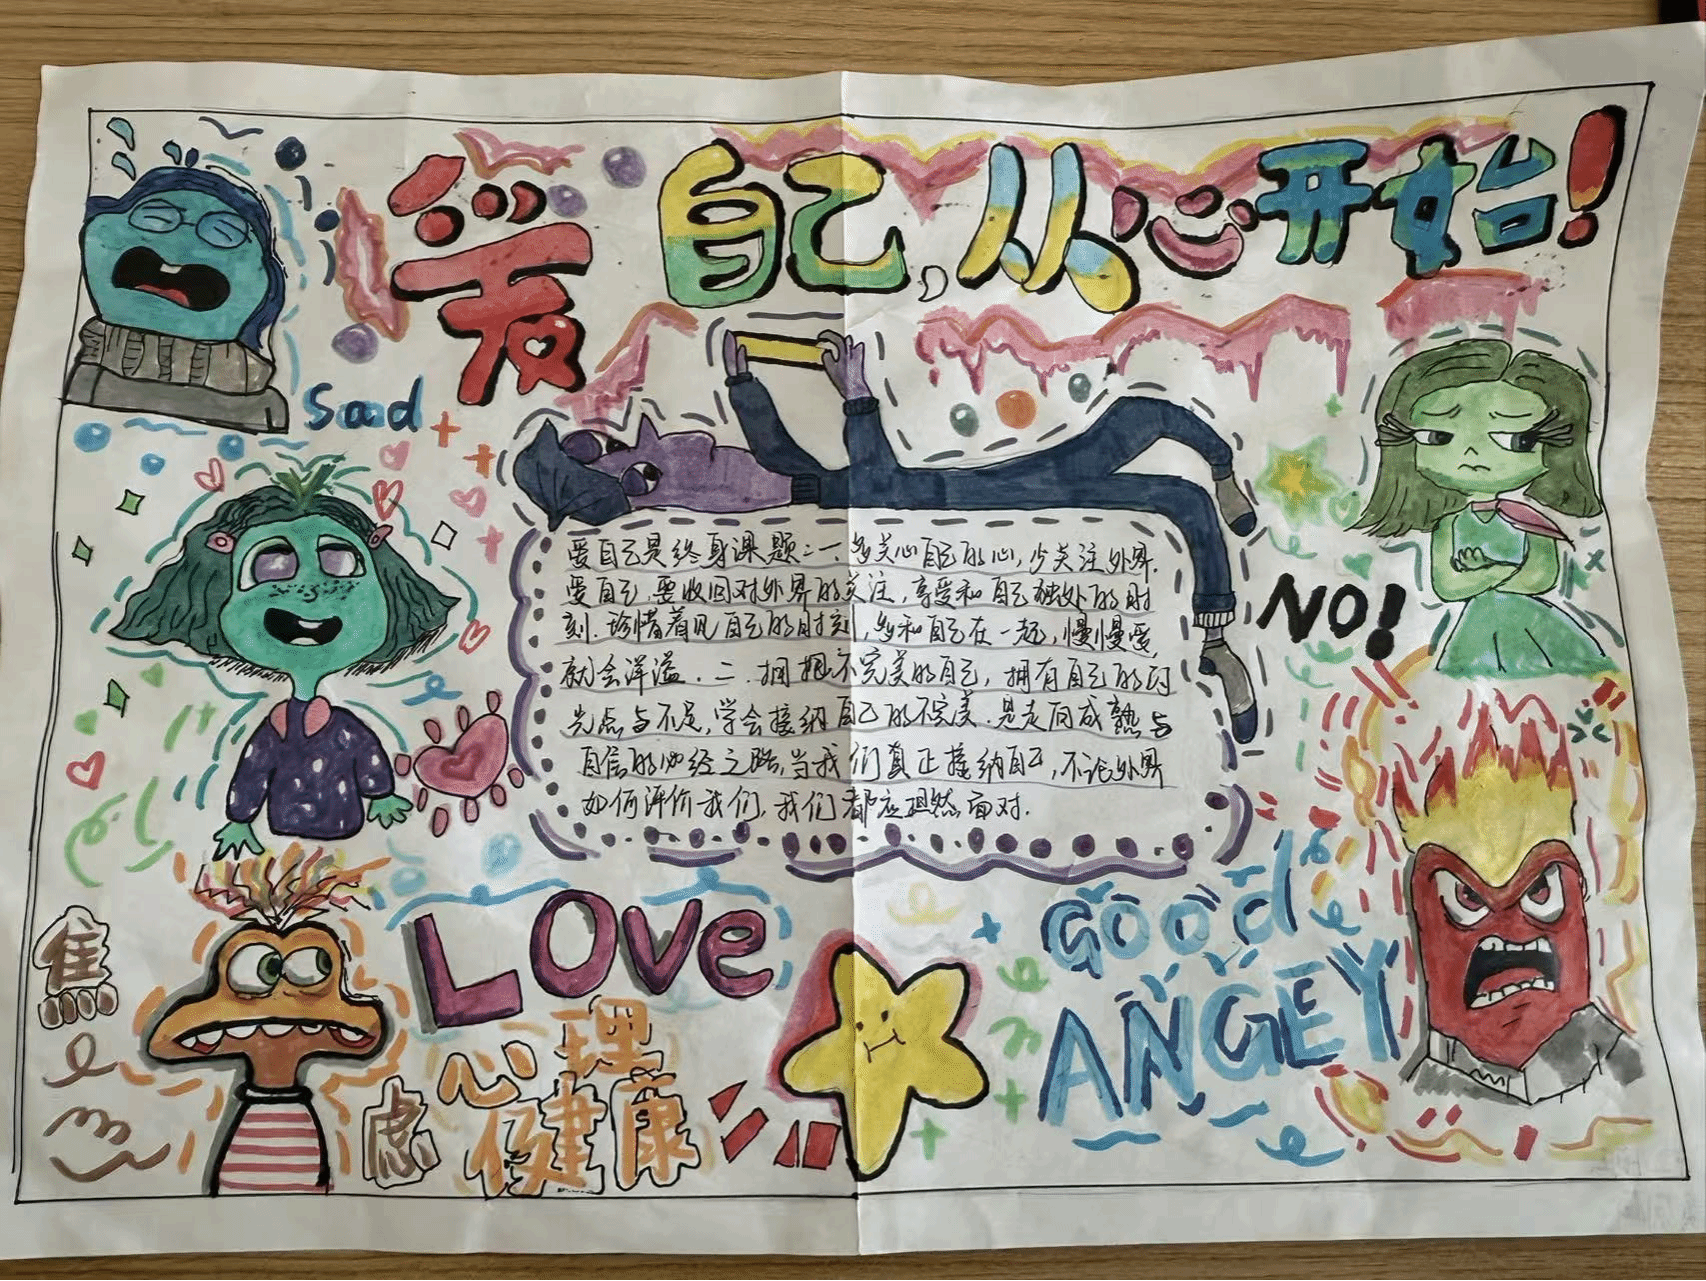 爱自己,从心开始!
Sad
爱自己是终身课题:一、多关心自己的心,少关注外界.
爱自己,要收回对外界的关注,享受和自己独处的时
刻.珍惜看见自己的时刻,多和自己在一起,慢慢爱,
就会洋溢.二.拥抱不完美的自己,拥有自己的闪
光点与不足,学会接纳自己的不完美.是走向成熟与
自信的必经之路,当我们真正接纳自己,不论外界
如何评价我们,我们都应坦然面对.
NO!
LOve
Good
ANGEY
焦
虑
心理
健康